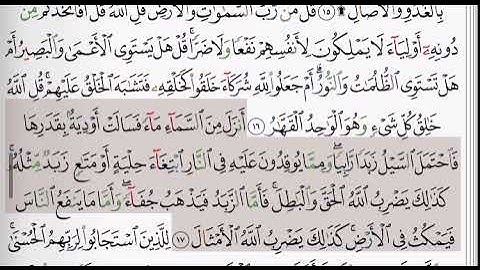 بِٱلْغُدُوِّ وَٱلْـَٔاصَالِ ۩ ١٥ قُلْ مَن رَّبُّ ٱلسَّمَٰوَٰتِ وَٱلْأَرْضِ قُلِ ٱللَّهُ قُلْ أَفَٱتَّخَذْتُم مِّن
دُونِهِۦٓ أَوْلِيَآءَ لَا يَمْلِكُونَ لِأَنفُسِهِمْ نَفْعًا وَلَا ضَرًّا ۚ قُلْ هَلْ يَسْتَوِى ٱلْأَعْمَىٰ وَٱلْبَصِيرُ أَمْ
هَلْ تَسْتَوِى ٱلظُّلُمَٰتُ وَٱلنُّورُ ۗ أَمْ جَعَلُوا۟ لِلَّهِ شُرَكَآءَ خَلَقُوا۟ كَخَلْقِهِۦ فَتَشَٰبَهَ ٱلْخَلْقُ عَلَيْهِمْ ۚ قُلِ ٱللَّهُ
خَٰلِقُ كُلِّ شَىْءٍ وَهُوَ ٱلْوَٰحِدُ ٱلْقَهَّٰرُ ١٦ أَنزَلَ مِنَ ٱلسَّمَآءِ مَآءً فَسَالَتْ أَوْدِيَةٌۢ بِقَدَرِهَا
فَٱحْتَمَلَ ٱلسَّيْلُ زَبَدًا رَّابِيًا ۚ وَمِمَّا يُوقِدُونَ عَلَيْهِ فِى ٱلنَّارِ ٱبْتِغَآءَ حِلْيَةٍ أَوْ مَتَٰعٍ زَبَدٌ مِّثْلُهُۥ ۚ
كَذَٰلِكَ يَضْرِبُ ٱللَّهُ ٱلْحَقَّ وَٱلْبَٰطِلَ ۚ فَأَمَّا ٱلزَّبَدُ فَيَذْهَبُ جُفَآءً ۖ وَأَمَّا مَا يَنفَعُ ٱلنَّاسَ
فَيَمْكُثُ فِى ٱلْأَرْضِ ۚ كَذَٰلِكَ يَضْرِبُ ٱللَّهُ ٱلْأَمْثَالَ ١٧ لِلَّذِينَ ٱسْتَجَابُوا۟ لِرَبِّهِمُ ٱلْحُسْنَىٰ ۚ